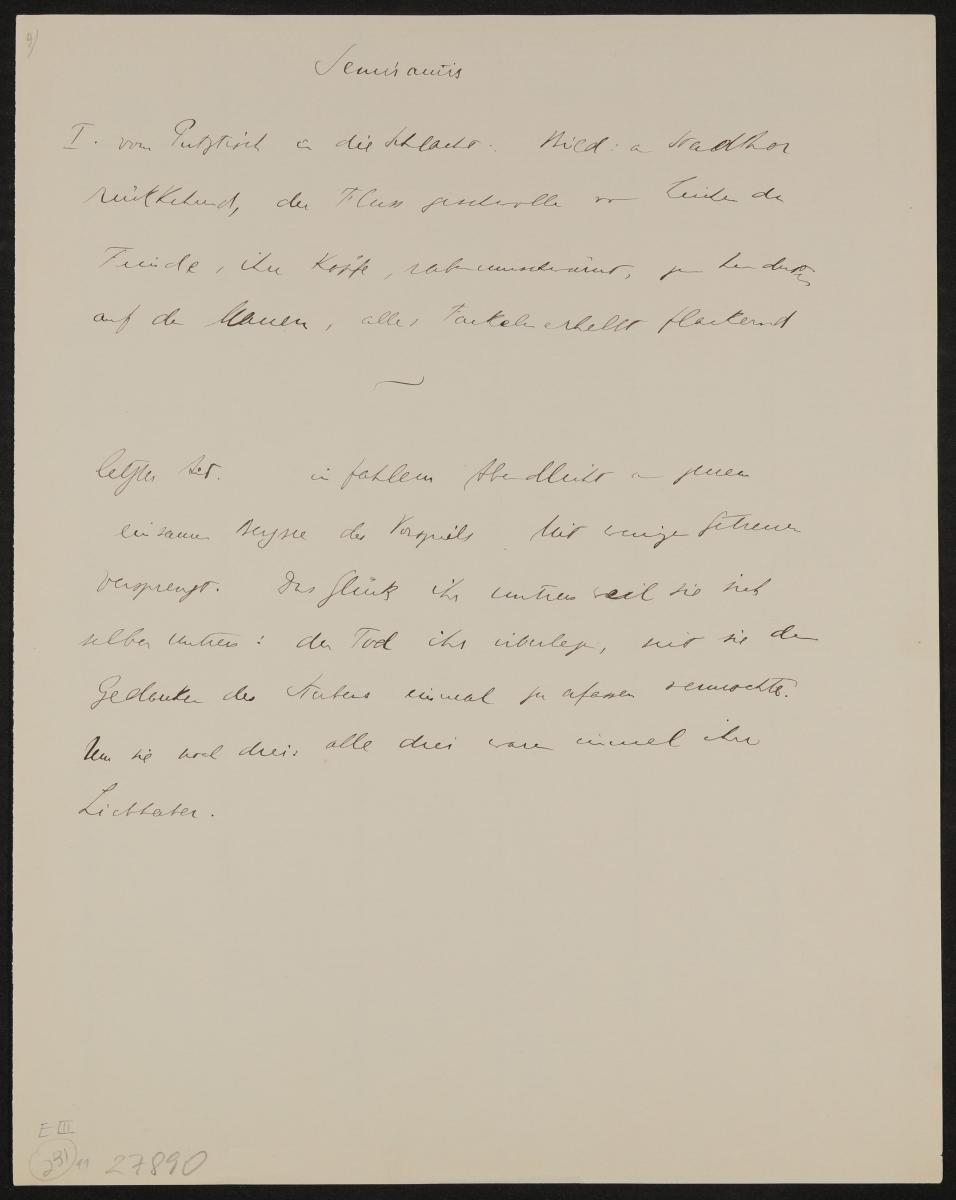 9)
Semiramis
I. vom Putztisch in die Schlacht. Bild: am Stadtthor
rückkehrend, der Fluss geschwollen von Leichen der
Feinde, ihre Köpfe, rabenumschwärmt, zu hunderten
auf den Mauern, alles Fackelnerhellt flackernd
~
letzter Act. in fahlem Abendlicht an jenem
einsamen des Vorspiels. Mit wenigen Getreuen
versprengt. Das Glück ihr untreu weil sie sich
selber untreu: der Tod ihr überlegen, seit sie den
Gedanken des Sterbens einmal zu erfassen vermochte.
Um sie noch drei: alle drei waren einmal ihre
Liebhaber.
E III
231 91 27890